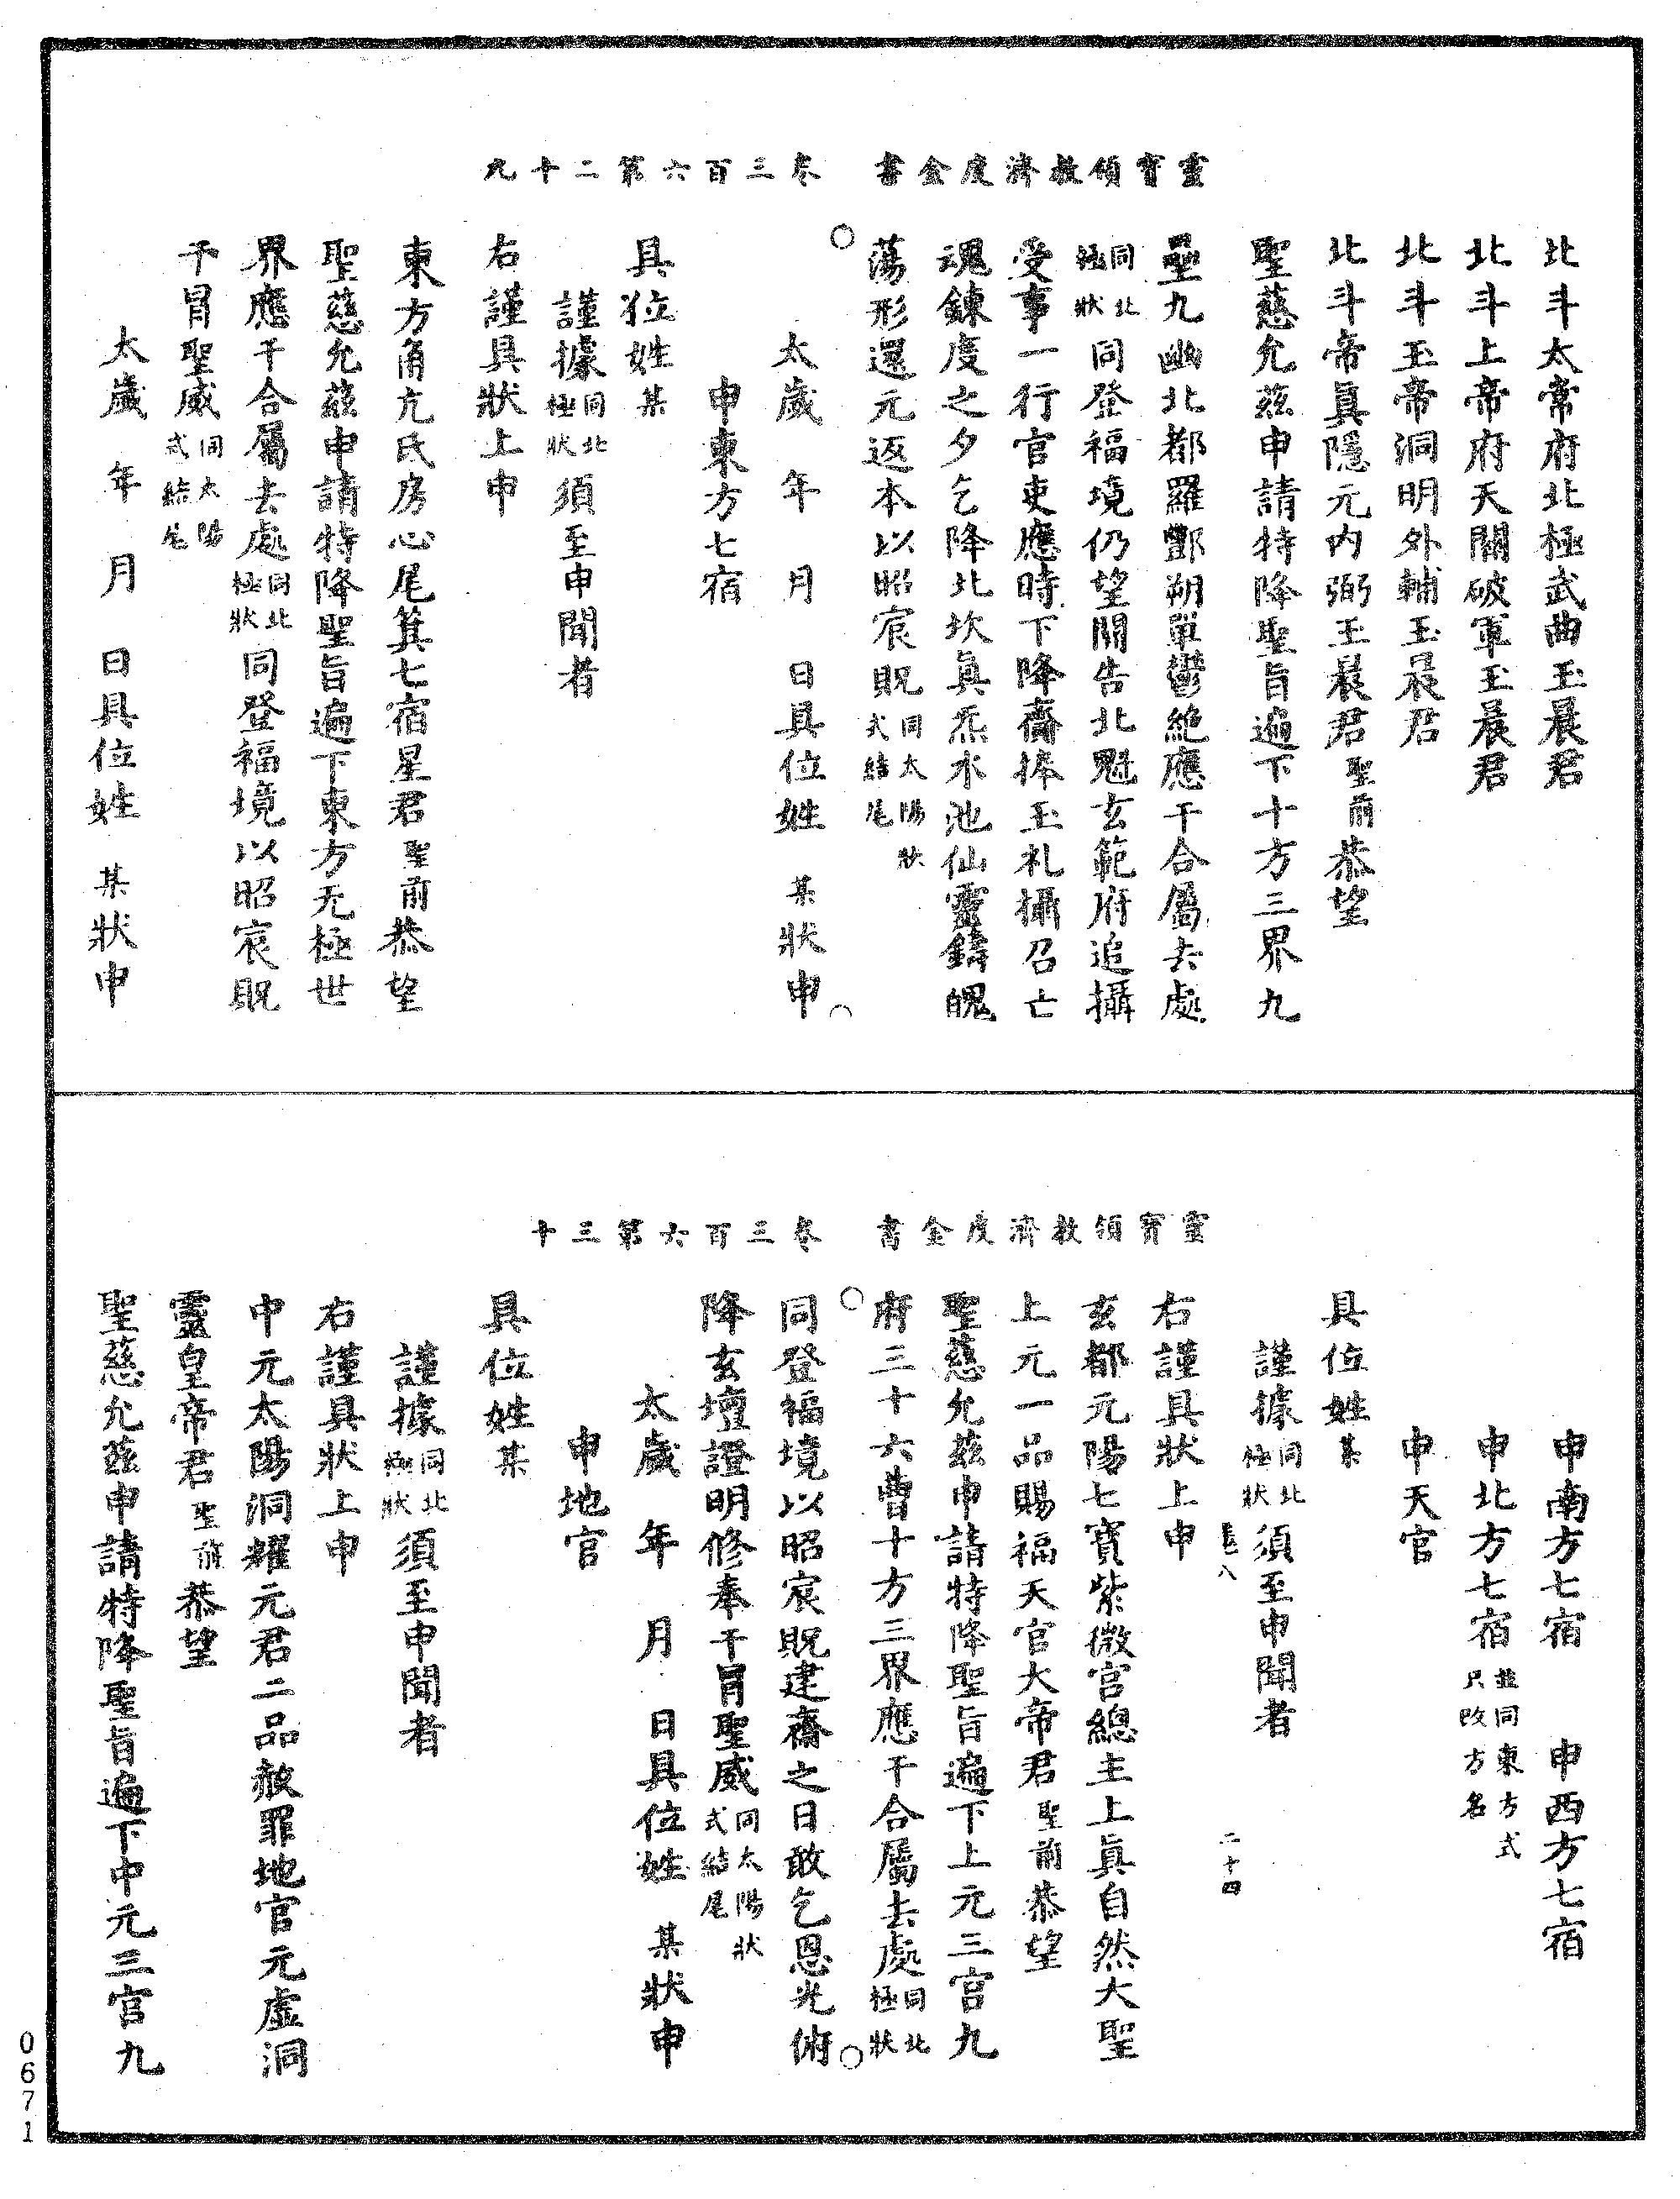 靈寶領教濟度金書　卷三百六第二十九
北斗太常府北極武曲玉晨君
北斗上帝府天關破軍玉晨君
北斗玉帝洞明外輔玉晨君
北斗帝真隱元內弼玉晨君聖前恭望
聖慈允茲申請特降聖旨遍下十方三界九
壘九幽北都羅酆朔單鬱絕應干合屬去處
同北極狀同登福境仍望關告北魁玄範府追攝
受事一行官吏應時下降齋捧玉札攝召亡
魂鍊度之夕乞降北坎真炁水池仙靈鑄魄
蕩形還元返本以昭宸貺同太陽狀式結尾
太歲　年　月　日具位姓　某狀申
申東方七宿
具位姓某
謹據同北極狀須至申聞者
右謹具狀上申
東方角亢氐房心尾箕七宿星君聖前恭望
聖慈允茲申請特降聖旨遍下東方无極世
界應干合屬去處同北極狀同登福境以昭宸貺
干冒聖威同太陽式結尾
太歲　年　月　日具位姓　某狀申
靈寶領教濟度金書　卷三百六第三十
申南方七宿　申西方七宿
申北方七宿並同東方式只改方名
申天官
具位姓某
謹據同北極狀須至申聞者
八　二十四
右謹具狀上申
玄都元陽七寶紫微宮總主上真自然大聖
上元一品賜福天官大帝君聖前恭望
聖慈允茲申請特降聖旨遍下上元三宮九
府三十六曹十方三界應干合屬去處同北極狀
同登福境以昭宸貺建齋之日敢乞恩光俯
降玄壇證明修奉干冒聖威同太陽狀式結尾
太歲　年　月　日具位姓　某狀申
申地官
具位姓某
謹據同北極狀須至申聞者
右謹具狀上申
中元太陽洞耀元君二品赦罪地官元虛洞
靈皇帝君聖前恭望
聖慈允茲申請特降聖旨遍下中元三宮九
0671